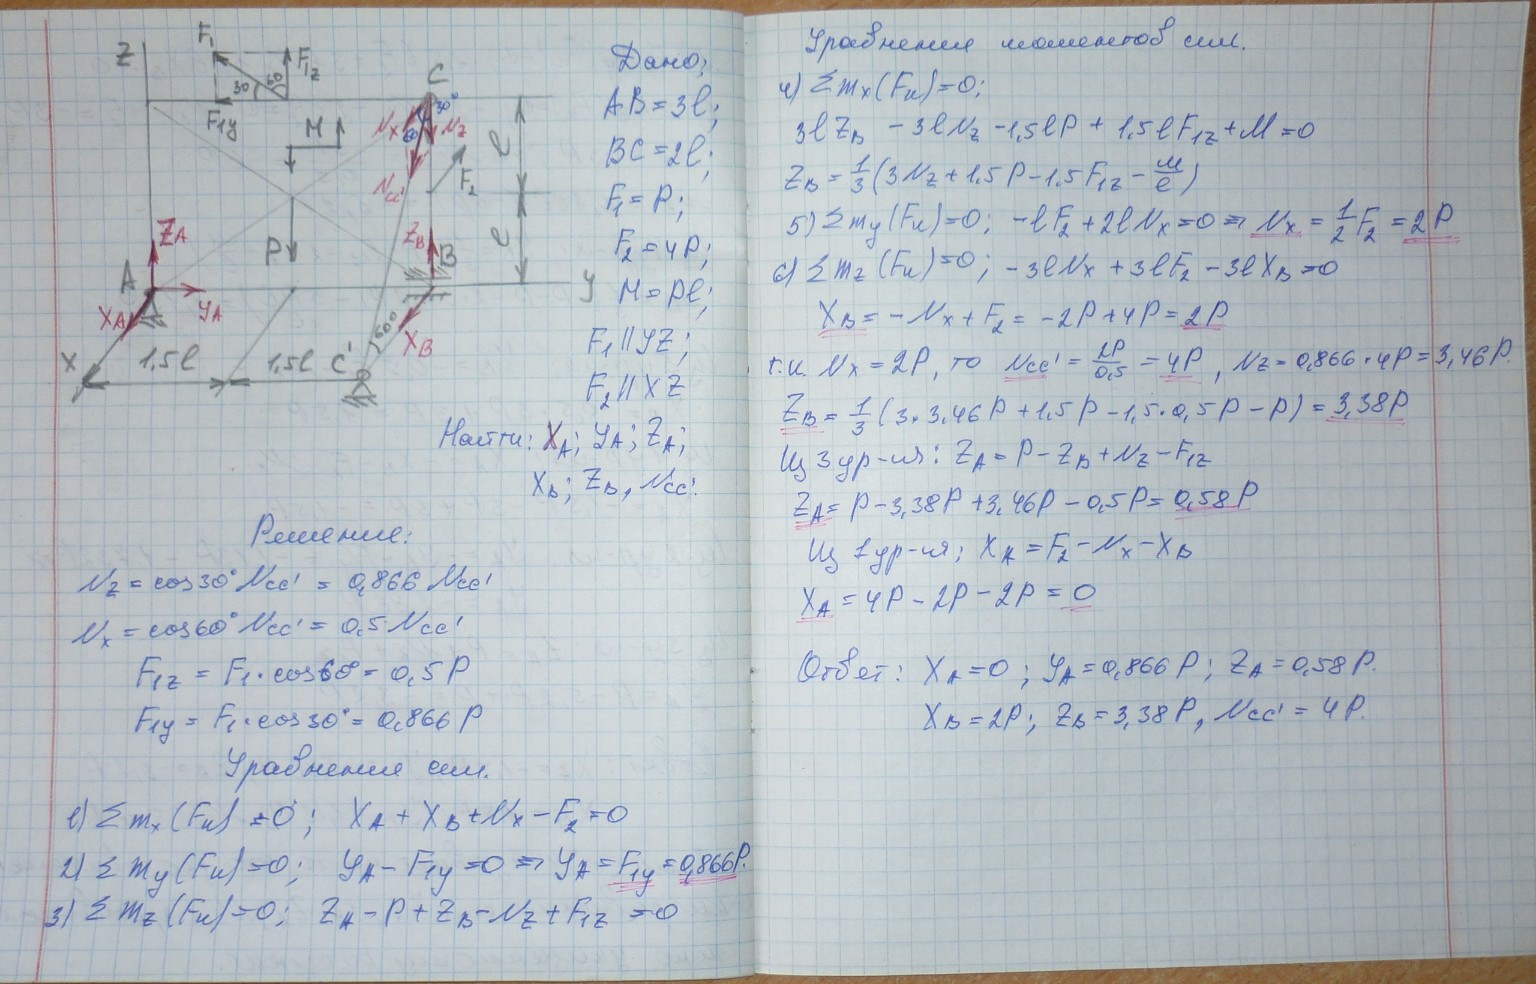 Z
F₁
F₁z
30
60
F₁y
M
C
30°
Nx
60
Nz
Ncc'
F₂
l
l
ZA
P
ZB
B
A
y
XA
YA
60°
XB
X
1,5l
1,5l
C'
Дано;
AB = 3l;
BC = 2l;
F₁ = P;
F₂ = 4P;
M = Pl;
F₁ || YZ;
F₂ || XZ
Найти: XA; YA; ZA;
XB; ZB, Ncc'.
Решение:
Nz = cos30° Ncc' = 0,866 Ncc'
Nx = cos60° Ncc' = 0,5 Ncc'
F₁z = F₁·cos60° = 0,5 P
F₁y = F₁·cos30° = 0,866 P
Уравнения сил.
1) Σmx(Fк) = 0; XA + XB + Nx − F₂ = 0
2) Σmy(Fк) = 0; YA − F₁y = 0 ⇒ YA = F₁y = 0,866P.
3) Σmz(Fк) = 0; ZA − P + ZB − Nz + F₁z = 0
Уравнения моментов сил.
4) Σmx(Fк) = 0;
3lZB − 3lNz − 1,5lP + 1,5lF₁z + M = 0
ZB = 1/3 (3Nz + 1,5P − 1,5F₁z − M/l)
5) Σmy(Fк) = 0; −lF₂ + 2lNx = 0 ⇒ Nx = 1/2 F₂ = 2P
6) Σmz(Fк) = 0; −3lNx + 3lF₂ − 3lXB = 0
XB = −Nx + F₂ = −2P + 4P = 2P
т.к Nx = 2P, то Ncc' = 2P/0,5 = 4P, Nz = 0,866·4P = 3,46P.
ZB = 1/3 (3·3,46P + 1,5P − 1,5·0,5P − P) = 3,38P
Из 3 ур-ия: ZA = P − ZB + Nz − F₁z
ZA = P − 3,38P + 3,46P − 0,5P = 0,58P
Из 1 ур-ия; XA = F₂ − Nx − XB
XA = 4P − 2P − 2P = 0
Ответ: XA = 0; YA = 0,866P; ZA = 0,58P.
XB = 2P; ZB = 3,38P, Ncc' = 4P.